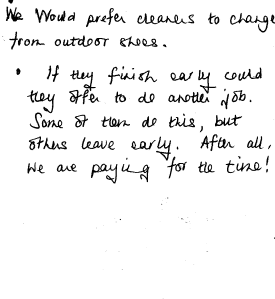 We Would prefer cleaners to change
from outdoor shoes.
• If they finish early could
they offer to do another job.
Some of them do this, but
others leave early. After all,
we are paying for the time!